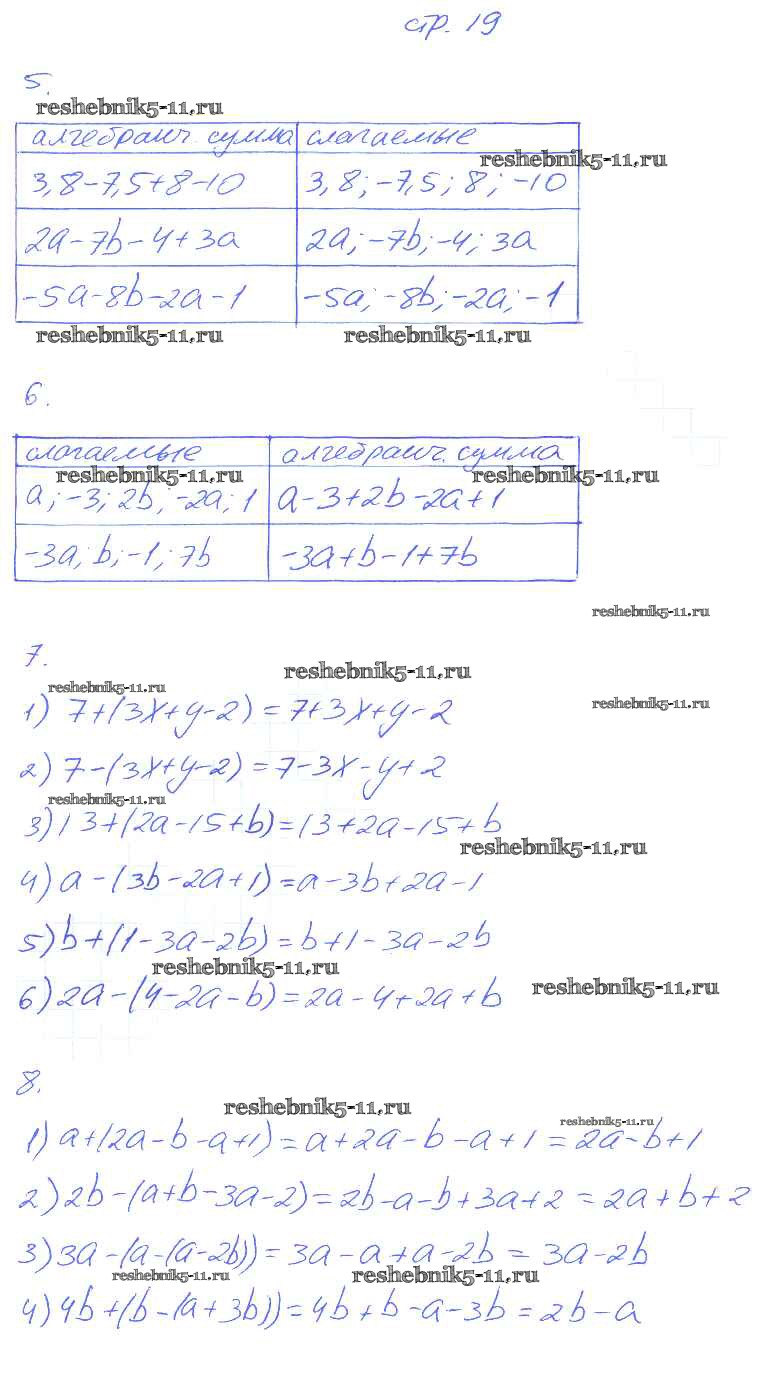 стр. 19
5.
reshebnik5-11.ru
алгебраич. сумма слагаемые
reshebnik5-11.ru
3,8-7,5+8-10 3,8; -7,5; 8; -10
2a-7b-4+3a 2a; -7b; -4; 3a
-5a-8b-2a-1 -5a; -8b; -2a; -1
reshebnik5-11.ru reshebnik5-11.ru
6.
слагаемые алгебраич. сумма
reshebnik5-11.ru reshebnik5-11.ru
a; -3; 2b; -2a; 1 a-3+2b-2a+1
-3a; b; -1; 7b -3a+b-1+7b
reshebnik5-11.ru
7.
reshebnik5-11.ru
reshebnik5-11.ru
reshebnik5-11.ru
1) 7+(3x+y-2)=7+3x+y-2
2) 7-(3x+y-2)=7-3x-y+2
reshebnik5-11.ru
3) 13+(2a-15+b)=13+2a-15+b
reshebnik5-11.ru
4) a-(3b-2a+1)=a-3b+2a-1
5) b+(1-3a-2b)=b+1-3a-2b
reshebnik5-11.ru
6) 2a-(4-2a-b)=2a-4+2a+b
reshebnik5-11.ru
8.
reshebnik5-11.ru
reshebnik5-11.ru
1) a+(2a-b-a+1)=a+2a-b-a+1=2a-b+1
2) 2b-(a+b-3a-2)=2b-a-b+3a+2=2a+b+2
3) 3a-(a-(a-2b))=3a-a+a-2b=3a-2b
reshebnik5-11.ru reshebnik5-11.ru
4) 4b+(b-(a+3b))=4b+b-a-3b=2b-a